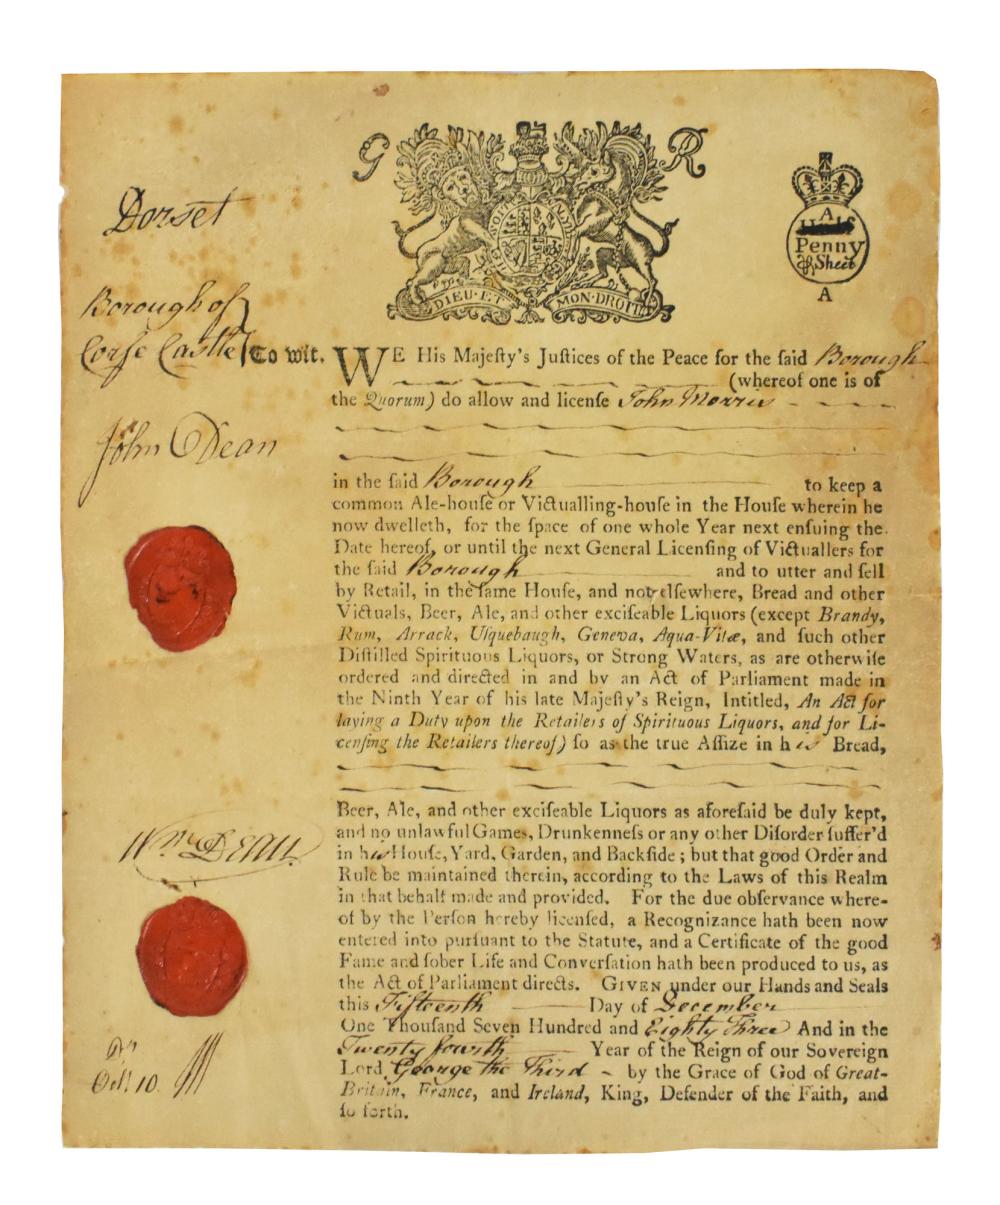 G R
A
Half
Penny
Sheet
A
DIEU·ET MON·DROIT
Dorset
Borough of
Corfe Castle } To wit.
John Dean
Wm. Dean
Oct. 10
WE His Majeſty's Juſtices of the Peace for the ſaid Borough
(whereof one is of
the Quorum) do allow and licenſe John Morris
in the ſaid Borough to keep a
common Ale-houſe or Victualling-houſe in the Houſe wherein he
now dwelleth, for the ſpace of one whole Year next enſuing the
Date hereof, or until the next General Licenſing of Victuallers for
the ſaid Borough and to utter and ſell
by Retail, in the ſame Houſe, and not elſewhere, Bread and other
Victuals, Beer, Ale, and other exciſeable Liquors (except Brandy,
Rum, Arrack, Uſquebaugh, Geneva, Aqua-Vitæ, and ſuch other
Diſtilled Spirituous Liquors, or Strong Waters, as are otherwiſe
ordered and directed in and by an Act of Parliament made in
the Ninth Year of his late Majeſty's Reign, Intitled, An Act for
laying a Duty upon the Retailers of Spirituous Liquors, and for Li-
cenſing the Retailers thereof) ſo as the true Aſſize in his Bread,
Beer, Ale, and other exciſeable Liquors as aforeſaid be duly kept,
and no unlawful Games, Drunkenneſs or any other Diſorder ſuffer'd
in his Houſe, Yard, Garden, and Backſide; but that good Order and
Rule be maintained therein, according to the Laws of this Realm
in that behalf made and provided. For the due obſervance where-
of by the Perſon hereby licenſed, a Recognizance hath been now
entered into purſuant to the Statute, and a Certificate of the good
Fame and ſober Life and Converſation hath been produced to us, as
the Act of Parliament directs. GIVEN under our Hands and Seals
this Fifteenth Day of December
One Thouſand Seven Hundred and Eighty Three And in the
Twenty fourth Year of the Reign of our Sovereign
Lord George the Third by the Grace of God of Great-
Britain, France, and Ireland, King, Defender of the Faith, and
ſo forth.